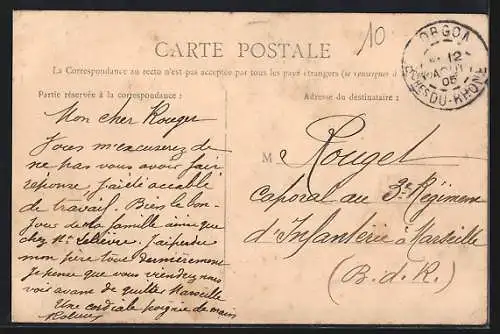 10
CARTE POSTALE
La Correspondance au recto n'est pas acceptée par tous les pays étrangers (se renseigner à
Partie réservée à la correspondance :
Adresse du destinataire :
ORGON
12
AOUT
05
DU-RHONE
Mon cher Rouger
Vous m'excuserez de
ne pas vous avoir fait
réponse j'ai été accablé
de travail. Bien le bon-
jour de la famille ainsi que
chez Mr
mon père tous dernièrement
je pense que vous viendrez nous
voir avant de quitter Marseille
Une cordiale poignée de main
M Rouget
Caporal au 3e Régiment
d'Infanterie à Marseille
(B. d. R.)